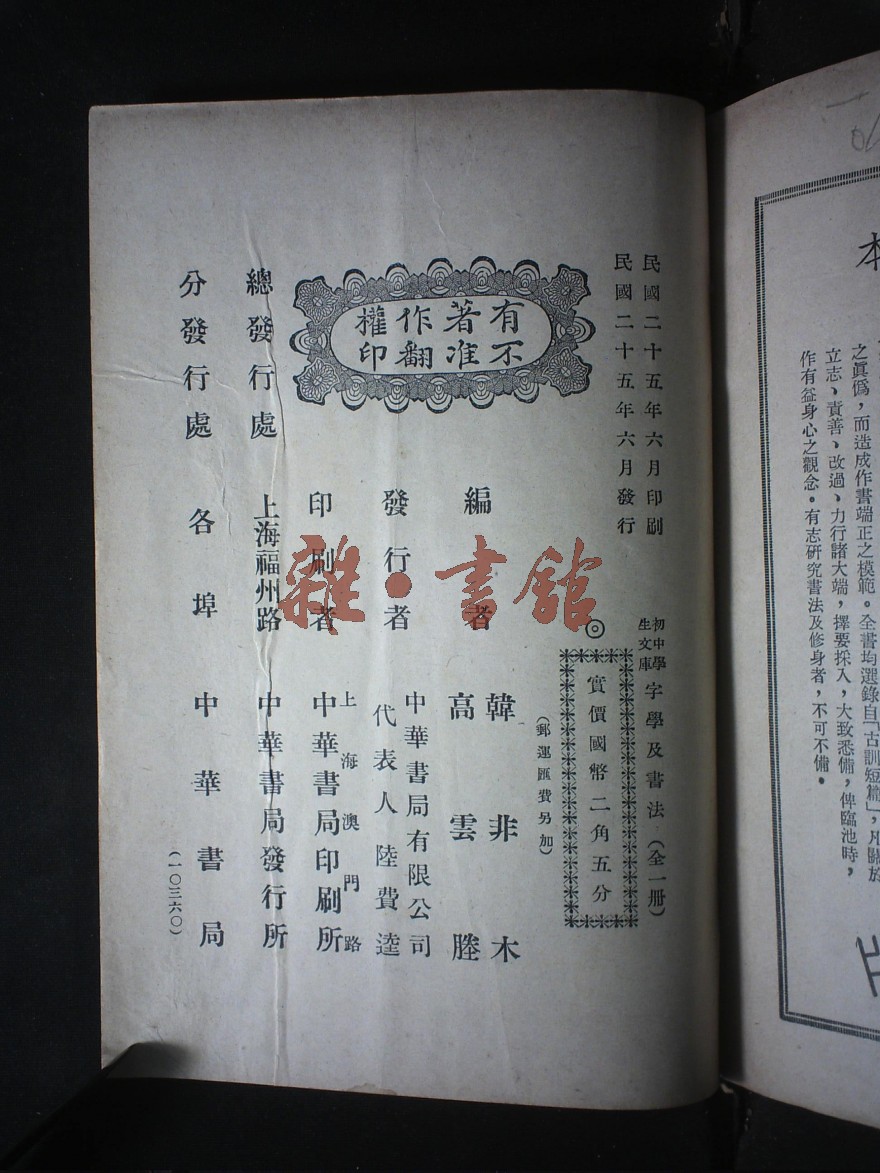 本
之眞僞，而造成作書端正之模範。全書均選錄自「古訓短篇」，凡關於
立志、責善、改過、力行諸大端，擇要採入，大致悉備，俾臨池時，
作有益身心之觀念。有志研究書法及修身者，不可不備。
民國二十五年六月印刷
民國二十五年六月發行
初中學生文庫 字學及書法（全一冊）
◎實價國幣二角五分
（郵運匯費另加）
有不著准作翻權印
編者 韓非木
高雲塍
發行者 中華書局有限公司
代表人 陸費逵
印刷者 上海澳門路
中華書局印刷所
總發行處 上海福州路 中華書局發行所
分發行處 各埠 中華書局
（一〇三六〇）
雜·書館